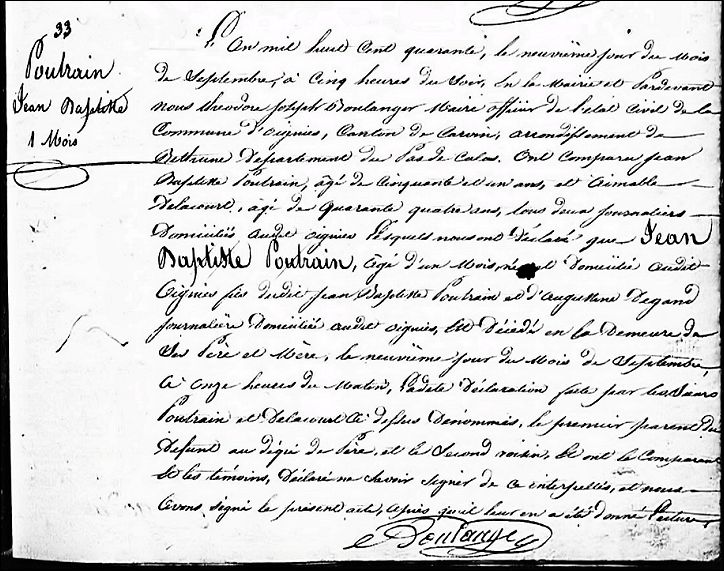 33
Poutrain
Jean Baptiste
1 Mois
L'an mil huit Cent quarante, le neuvième jour du Mois
de Septembre, à Cinq heures du Soir, En la Mairie et Pardevant
nous théodore joseph Boulanger Maire officier de l'état Civil de la
Commune d'oignies, Canton de Carvin, arrondissement de
Béthune Département du Pas de Calais. Ont Comparu Jean
Baptiste Poutrain, âgé de Cinquante et un ans, et Aimable
Delacourt, âgé de Quarante quatre ans, tous deux journaliers
Domiciliés audit oignies lesquels nous ont Déclaré que Jean
Baptiste Poutrain, âgé d'un Mois, né et Domicilié audit
Oignies fils dudit Jean Baptiste Poutrain et d'Augustine Degand
journalière Domiciliée audit oignies, Est Décédé en la Demeure de
Ses Père et Mère, le neuvième jour du Mois de Septembre,
à onze heures du Matin, Ladite Déclaration faite par les Sieurs
Poutrain et Delacourt Ci dessus Dénommés, le premier parent du
Défunt au dégré de Père, et le Second voisin, Et ont le Comparant
Et les témoins, Déclaré ne Savoir Signer de Ce interpellés, et nous
avons Signé le présent acte, après qu'il leur en a été donné Lecture.
Boulanger